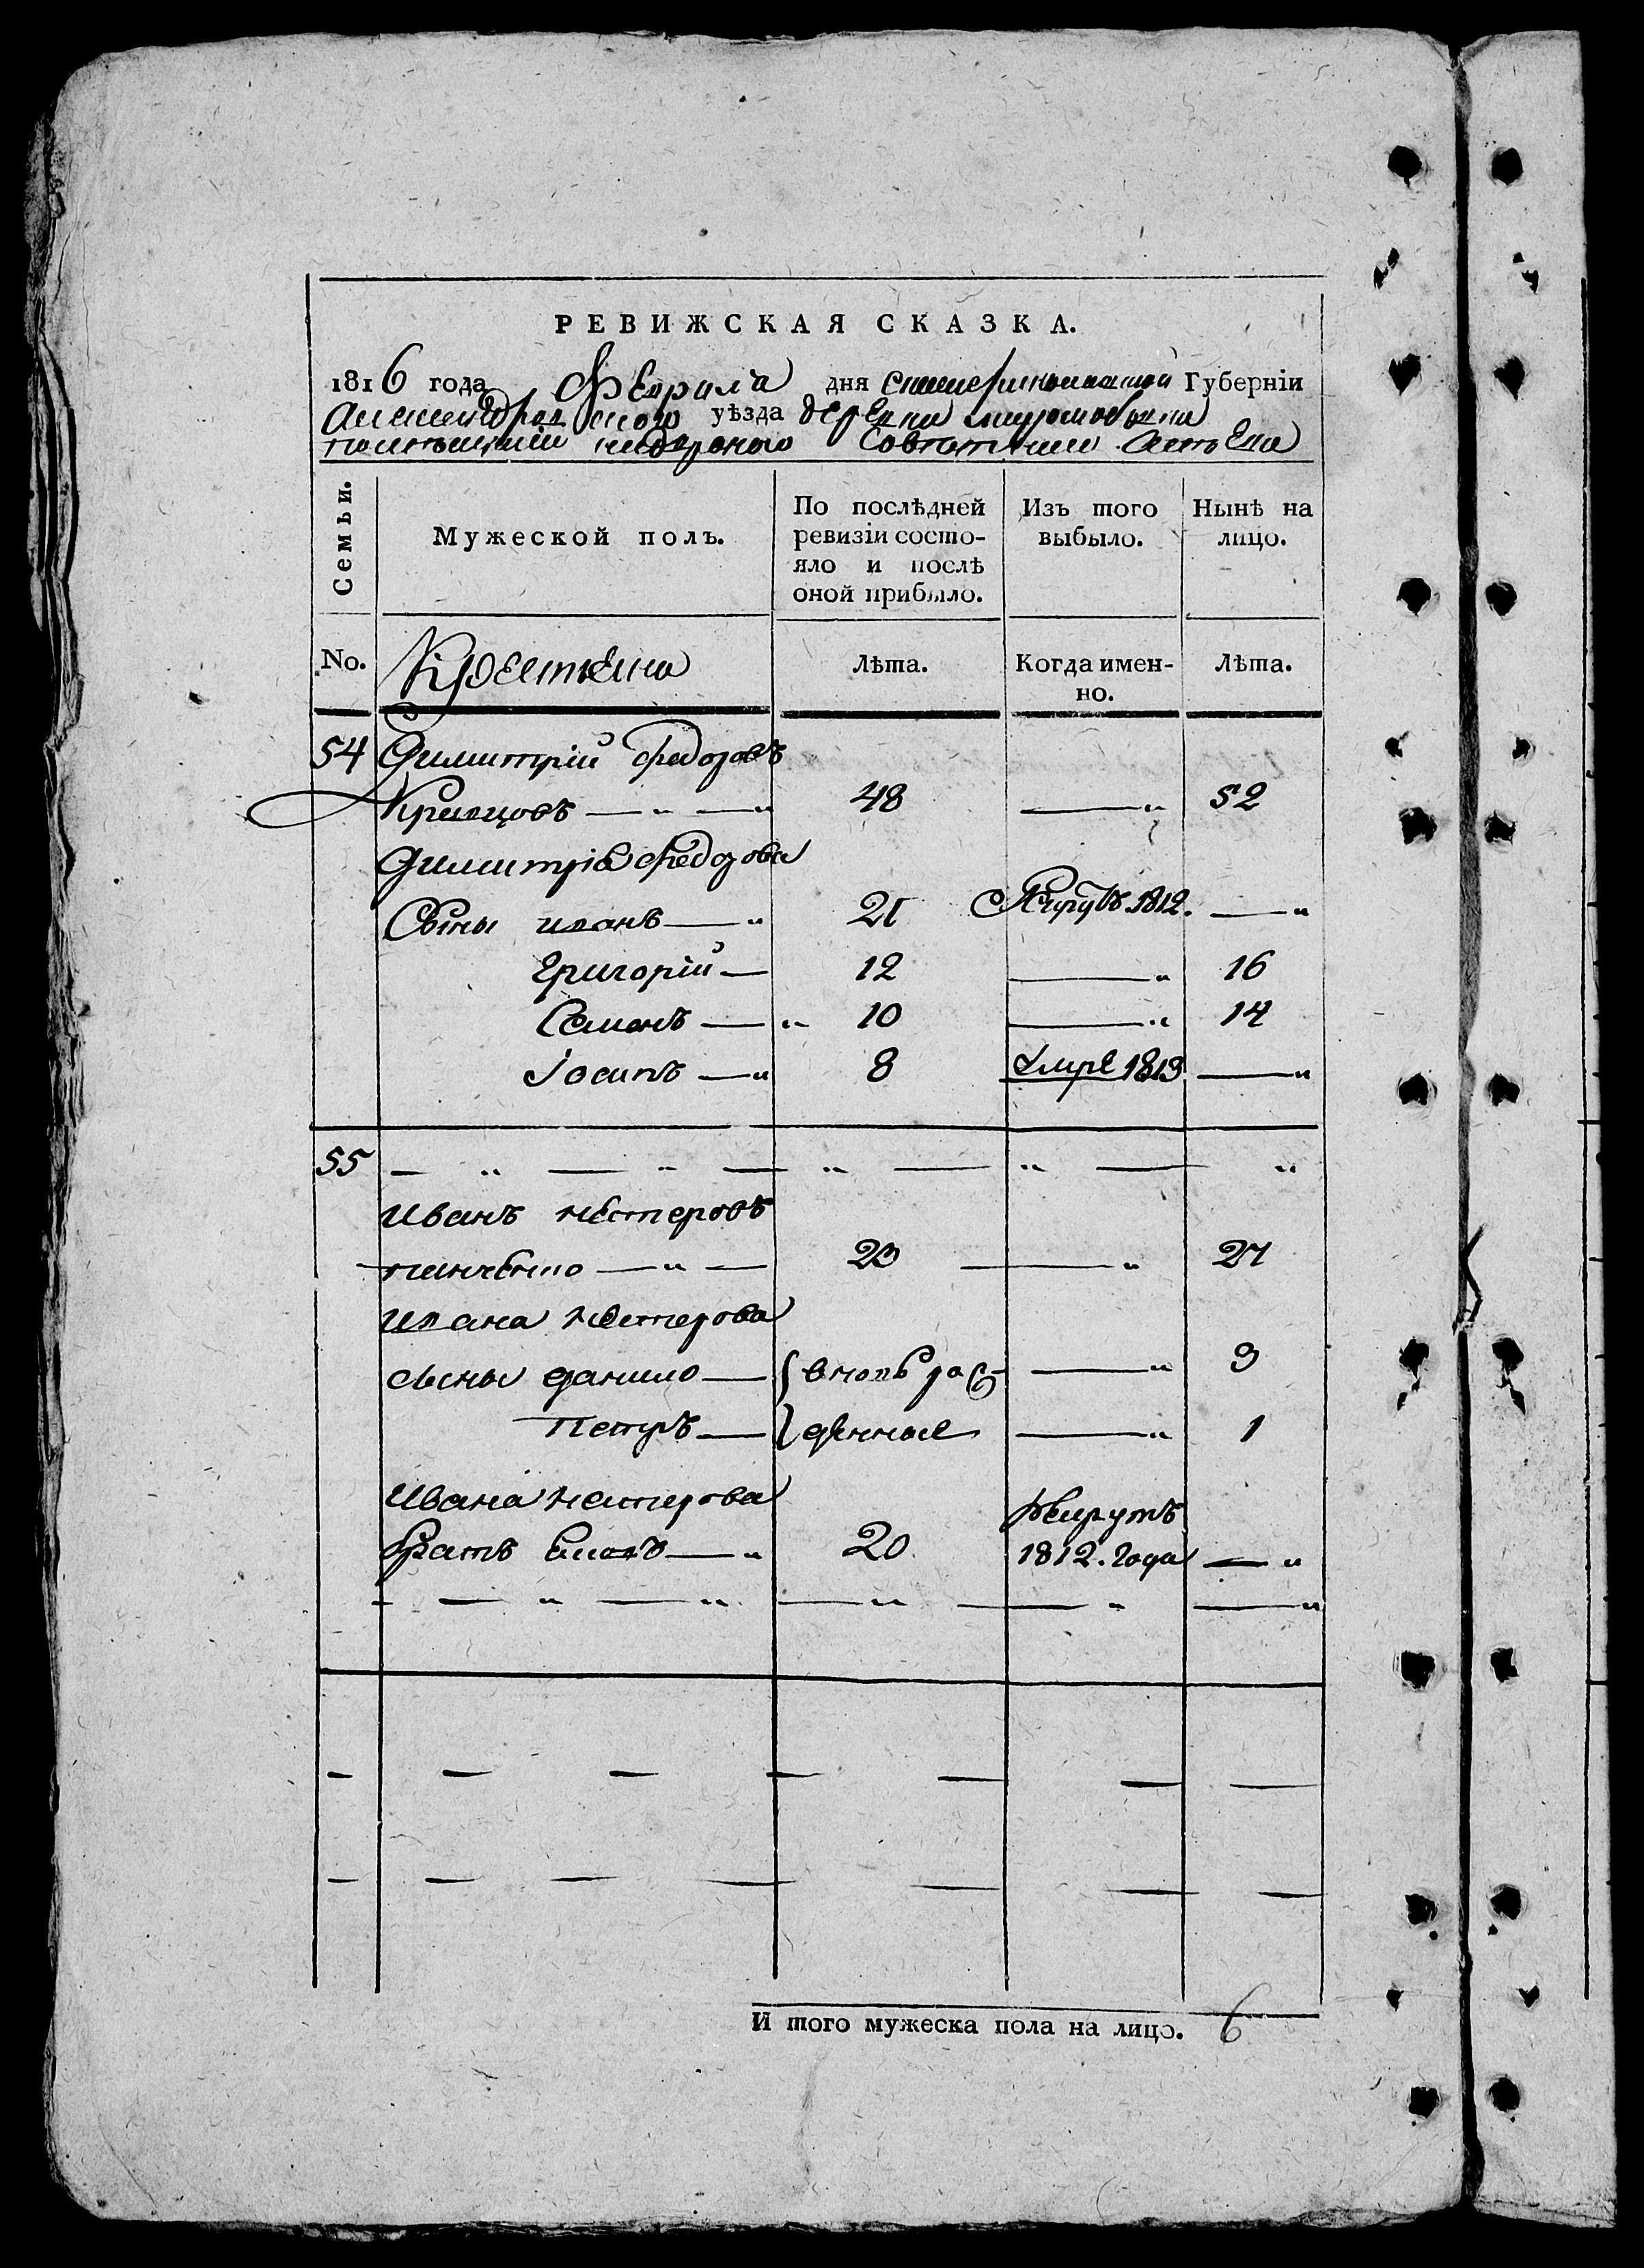 РЕВИЖСКАЯ СКАЗКА.
1816 года Феврала дня Екатеринославской Губернiи
Александровского уѣзда деревни
Семьи.
Мужеской полъ.
По послѣдней ревизiи состо-
яло и послѣ
оной прибыло.
Изъ того
выбыло.
Нынѣ на
лицо.
No.
Крестьяна
Лѣта.
Когда имен-
но.
Лѣта.
54 Димитрiй Федоровъ
Кравцовъ — 48 — 52
Димитрiя Федорова
Сыны иванъ — 21 Рекрутъ 1812. —
Григорiй — 12 — 16
Семенъ — 10 — 14
Iосипъ — 8 умре 1813 —
55
Иванъ нестеровъ
панченко — 23 — 27
ивана нестерова
сыны данило — вновь рож — 3
Петръ — денные — 1
Ивана нестерова
братъ — 20 рекрутъ
1812. года —
И того мужеска пола на лицо. 6